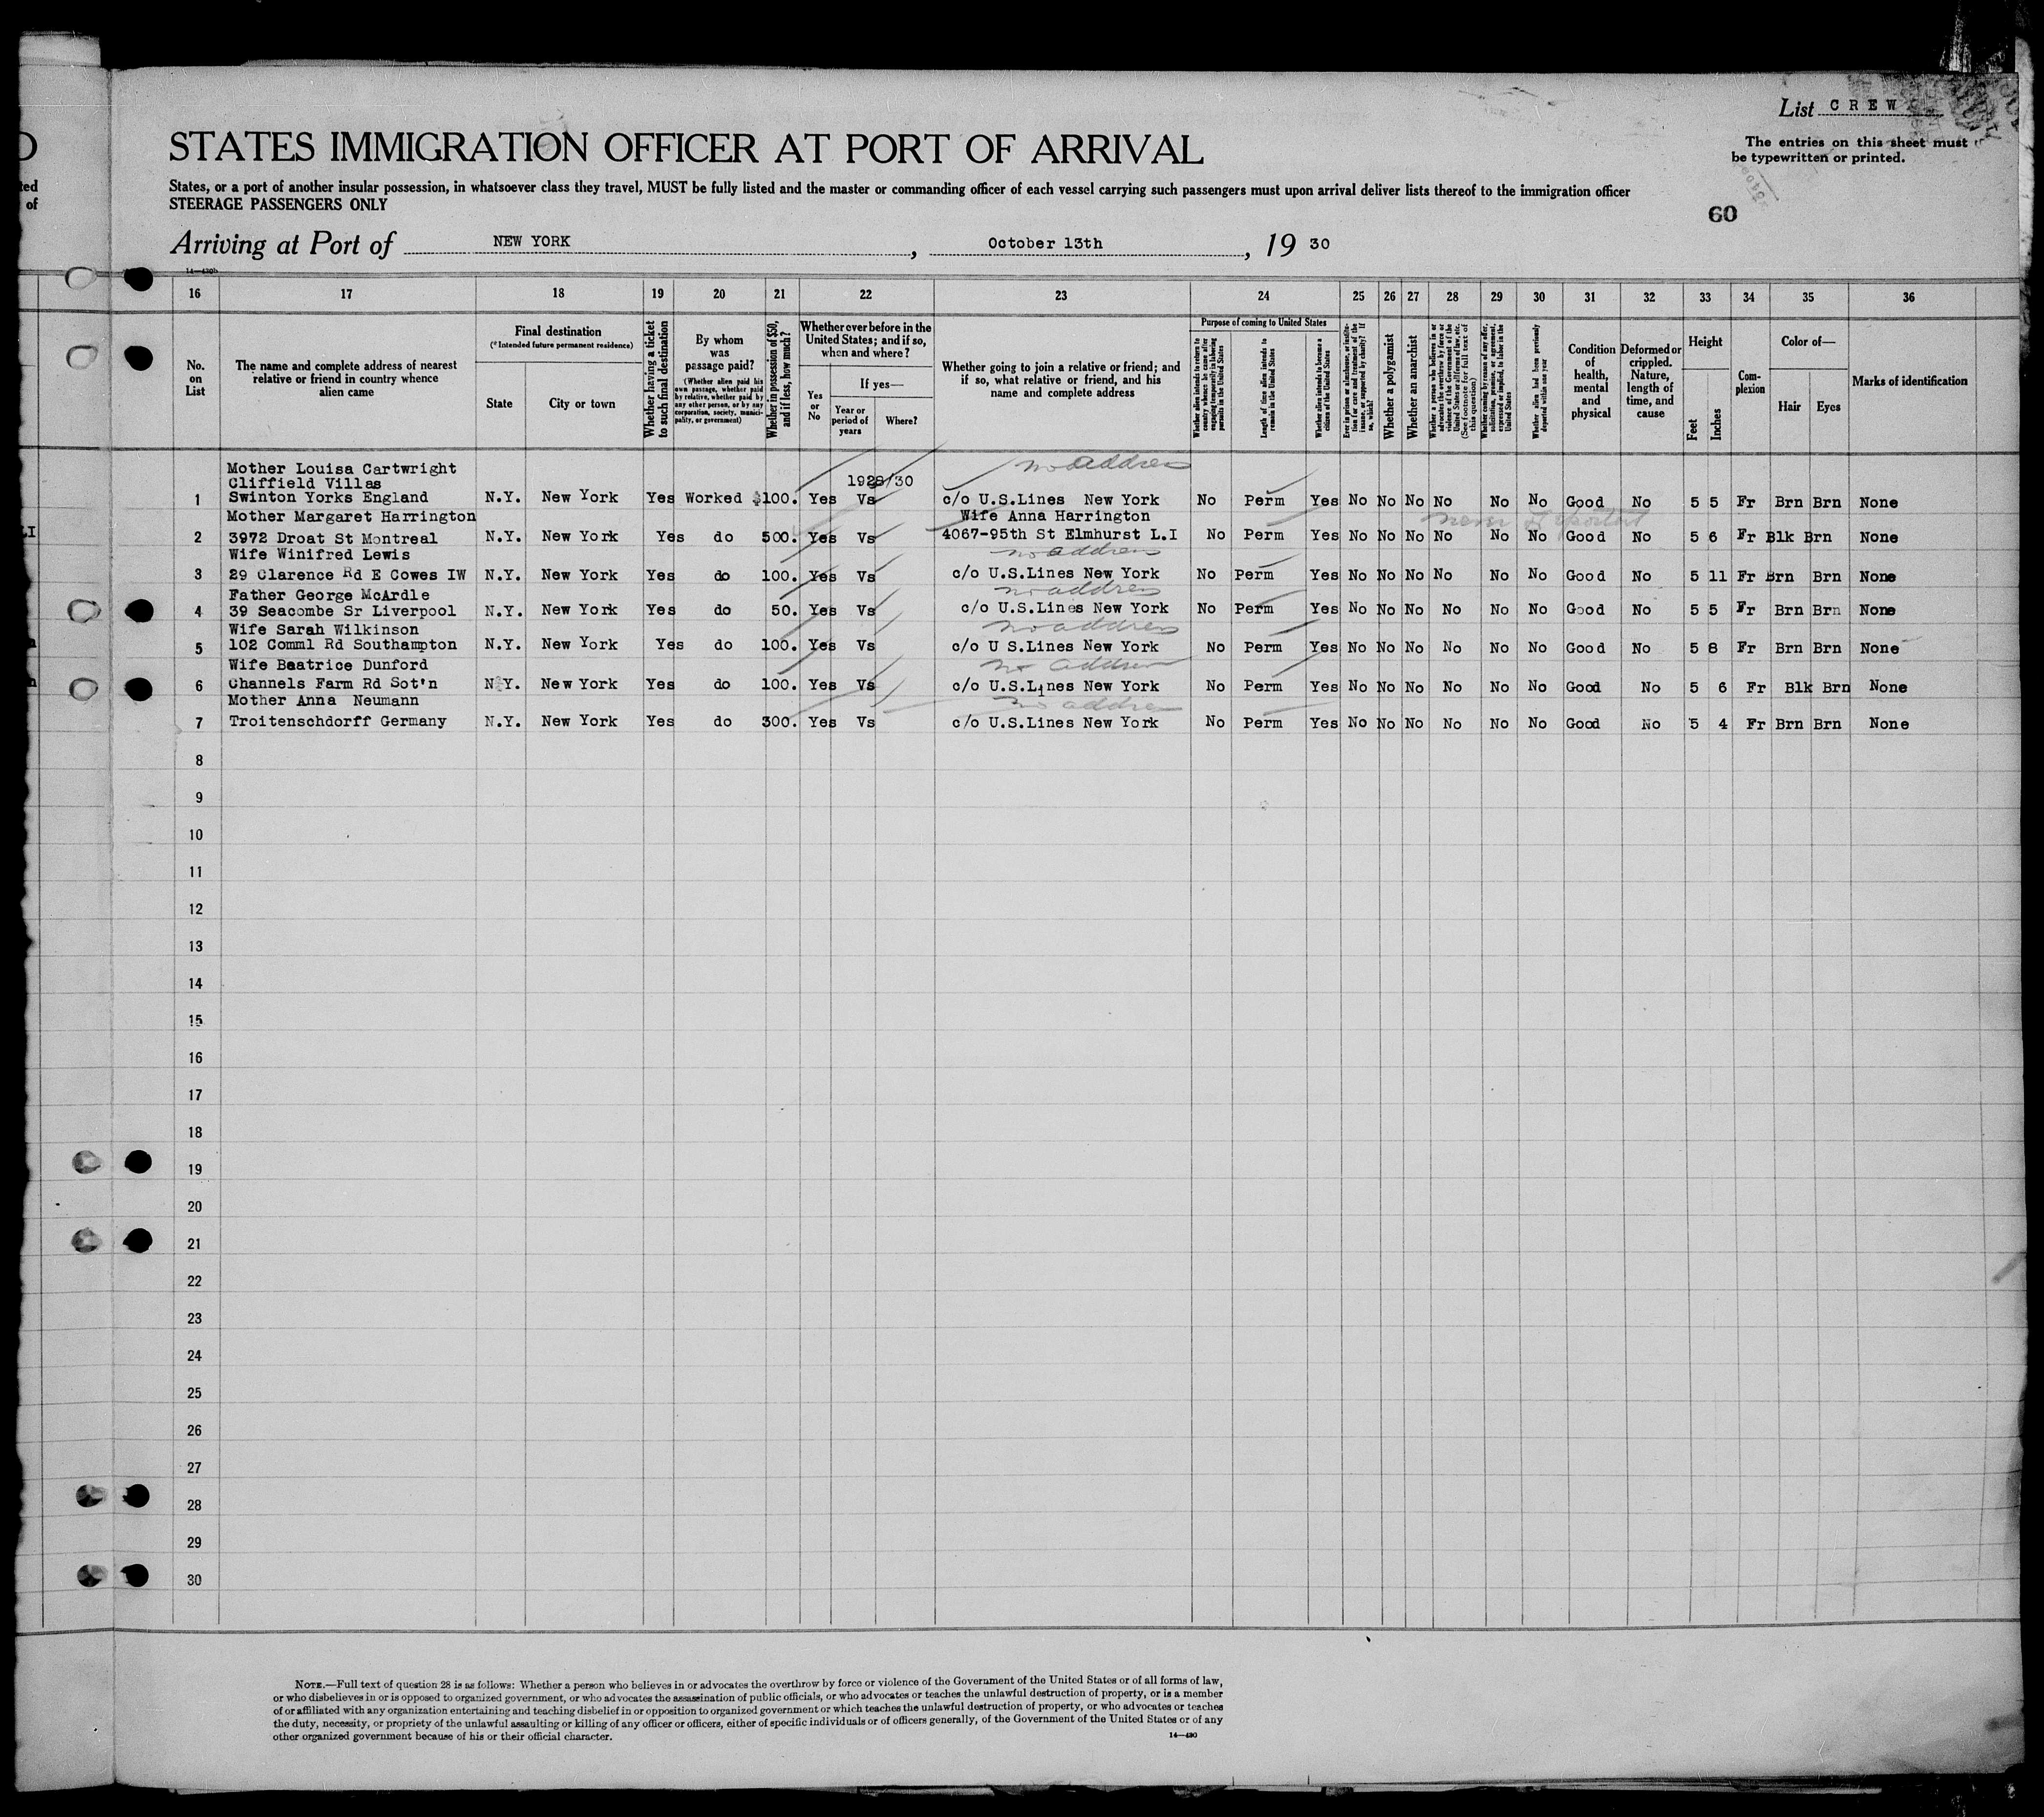 List CREW
The entries on this sheet must
be typewritten or printed.
STATES IMMIGRATION OFFICER AT PORT OF ARRIVAL
States, or a port of another insular possession, in whatsoever class they travel, MUST be fully listed and the master or commanding officer of each vessel carrying such passengers must upon arrival deliver lists thereof to the immigration officer
STEERAGE PASSENGERS ONLY
60
Arriving at Port of NEW YORK, October 13th, 19 30
16 17 18 19 20 21 22 23 24 25 26 27 28 29 30 31 32 33 34 35 36
No.
on
List
The name and complete address of nearest
relative or friend in country whence
alien came
Final destination
(*Intended future permanent residence)
State
City or town
Whether having a ticket
to such final destination
By whom
was
passage paid?
(Whether alien paid his
own passage, whether paid
by relative, whether paid by
any other person, or by any
corporation, society, munici-
pality, or government)
Whether in possession of $50,
and if less, how much?
Whether ever before in the
United States; and if so,
when and where?
Yes
or
No
If yes—
Year or
period of
years
Where?
Whether going to join a relative or friend; and
if so, what relative or friend, and his
name and complete address
Purpose of coming to United States
Whether alien intends to return to
country whence he came after
engaging temporarily in laboring
pursuits in the United States
Length of time alien intends to
remain in the United States
Whether alien intends to become a
citizen of the United States
Ever in prison or almshouse, or institu-
tion for care and treatment of the
insane, or supported by charity? If
so, which?
Whether a polygamist
Whether an anarchist
Whether a person who believes in or
advocates the overthrow by force or
violence of the Government of the
United States or all forms of law, etc.
(See footnote for full text of
this question)
Whether coming by reason of any offer,
solicitation, promise, or agreement,
expressed or implied, to labor in the
United States
Whether alien had been previously
deported within one year
Condition
of
health,
mental
and
physical
Deformed or
crippled.
Nature,
length of
time, and
cause
Height
Feet
Inches
Com-
plexion
Color of—
Hair
Eyes
Marks of identification
Mother Louisa Cartwright no address
Cliffield Villas 1928/30
1 Swinton Yorks England N.Y. New York Yes Worked $100. Yes Vs c/o U.S.Lines New York No Perm Yes No No No No No No Good No 5 5 Fr Brn Brn None
Mother Margaret Harrington Wife Anna Harrington
2 3972 Droat St Montreal N.Y. New York Yes do 500. Yes Vs 4067-95th St Elmhurst L.I No Perm Yes No No No No No No Good No 5 6 Fr Blk Brn None
Wife Winifred Lewis no address
3 29 Clarence Rd E Cowes IW N.Y. New York Yes do 100. Yes Vs c/o U.S.Lines New York No Perm Yes No No No No No No Good No 5 11 Fr Brn Brn None
Father George McArdle no address
4 39 Seacombe Sr Liverpool N.Y. New York Yes do 50. Yes Vs c/o U.S.Lines New York No Perm Yes No No No No No No Good No 5 5 Fr Brn Brn None
Wife Sarah Wilkinson no address
5 102 Comml Rd Southampton N.Y. New York Yes do 100. Yes Vs c/o U S.Lines New York No Perm Yes No No No No No No Good No 5 8 Fr Brn Brn None
Wife Beatrice Dunford no address
6 Channels Farm Rd Sot'n N.Y. New York Yes do 100. Yes Vs c/o U.S.Lines New York No Perm Yes No No No No No No Good No 5 6 Fr Blk Brn None
Mother Anna Neumann no address
7 Troitenschdorff Germany N.Y. New York Yes do 300. Yes Vs c/o U.S.Lines New York No Perm Yes No No No No No No Good No 5 4 Fr Brn Brn None
8
9
10
11
12
13
14
15
16
17
18
19
20
21
22
23
24
25
26
27
28
29
30
NOTE.—Full text of question 28 is as follows: Whether a person who believes in or advocates the overthrow by force or violence of the Government of the United States or of all forms of law,
or who disbelieves in or is opposed to organized government, or who advocates the assassination of public officials, or who advocates or teaches the unlawful destruction of property, or is a member
of or affiliated with any organization entertaining and teaching disbelief in or opposition to organized government or which teaches the unlawful destruction of property, or who advocates or teaches
the duty, necessity, or propriety of the unlawful assaulting or killing of any officer or officers, either of specific individuals or of officers generally, of the Government of the United States or of any
other organized government because of his or their official character.
14—430